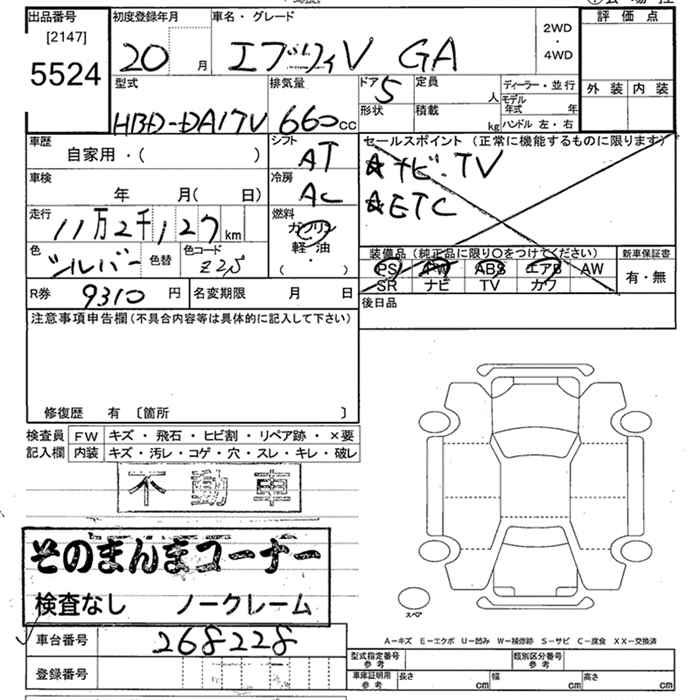 出品番号
[2147]
5524
初度登録年月
20 月
車名・グレード
エブリィV GA
2WD
・
4WD
評価点
外装 内装
型式
HBD-DA17V
排気量
660cc
ドア 5
形状
定員 人
積載 kg
ディーラー・並行
モデル年式 年
ハンドル 左・右
車歴
自家用・( )
シフト
AT
車検
年 月( 日)
冷房
AC
走行
11万2千127km
燃料
ガソリン
軽油・
( )
色
シルバー
色替
色コード
Z2S
セールスポイント (正常に機能するものに限ります)
☆ナビ・TV
☆ETC
装備品 (純正品に限り○をつけてください)
PS PW ABS エアB AW
SR ナビ TV カワ
新車保証書
有・無
R券 9310円
名変期限 月 日
後日品
注意事項申告欄(不具合内容等は具体的に記入して下さい)
修復歴 有 〔箇所 〕
検査員記入欄
FW キズ・飛石・ヒビ割・リペア跡・×要
内装 キズ・汚レ・コゲ・穴・スレ・キレ・破レ
不動車
そのまんまコーナー
検査なし ノークレーム
スペア
車台番号 268228
登録番号
A-キズ E-エクボ U-凹み W-補修跡 S-サビ C-腐食 XX-交換済
型式指定番号 参考
類別区分番号 参考
車庫証明用参考 長さ cm 幅 cm 高さ cm